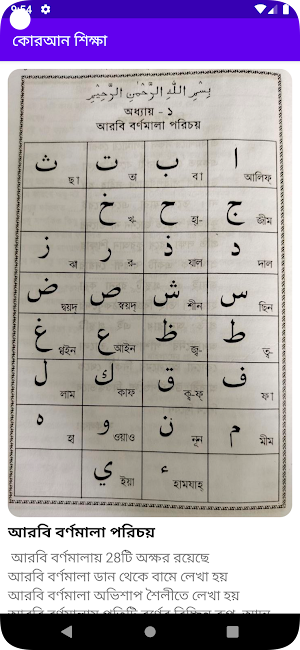 9:54
কোরআন শিক্ষা
بِسْمِ اللَّهِ الرَّحْمَٰنِ الرَّحِيمِ
অধ্যায় - ১
আরবি বর্ণমালা পরিচয়
ا ب ت ث
আলিফ্ বা তা ছা
ج ح خ
জীম হা- খ-
د ذ ر ز
দাল যাল র- ঝা
س ش ص ض
ছিন শীন স্বয়দ্ দ্বয়দ্
ط ظ ع غ
ত্ব- জ্ব- আইন গ্বইন
ف ق ك ل
ফা ক্ব-ফ্ কাফ্ লাম
م ن و ه
মীম নূন ওয়াও হা
ء ي
হামযাহ্ ইয়া
আরবি বর্ণমালা পরিচয়
আরবি বর্ণমালায় 28টি অক্ষর রয়েছে
আরবি বর্ণমালা ডান থেকে বামে লেখা হয়
আরবি বর্ণমালা অভিশাপ শৈলীতে লেখা হয়